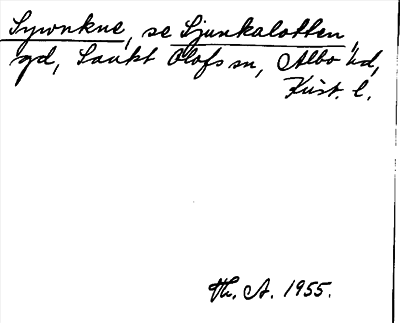 Sywnkne, se Sjunkalotten,
gd, Sankt Olofs sn, Albo hd,
Krist. l.
Th. A. 1955.